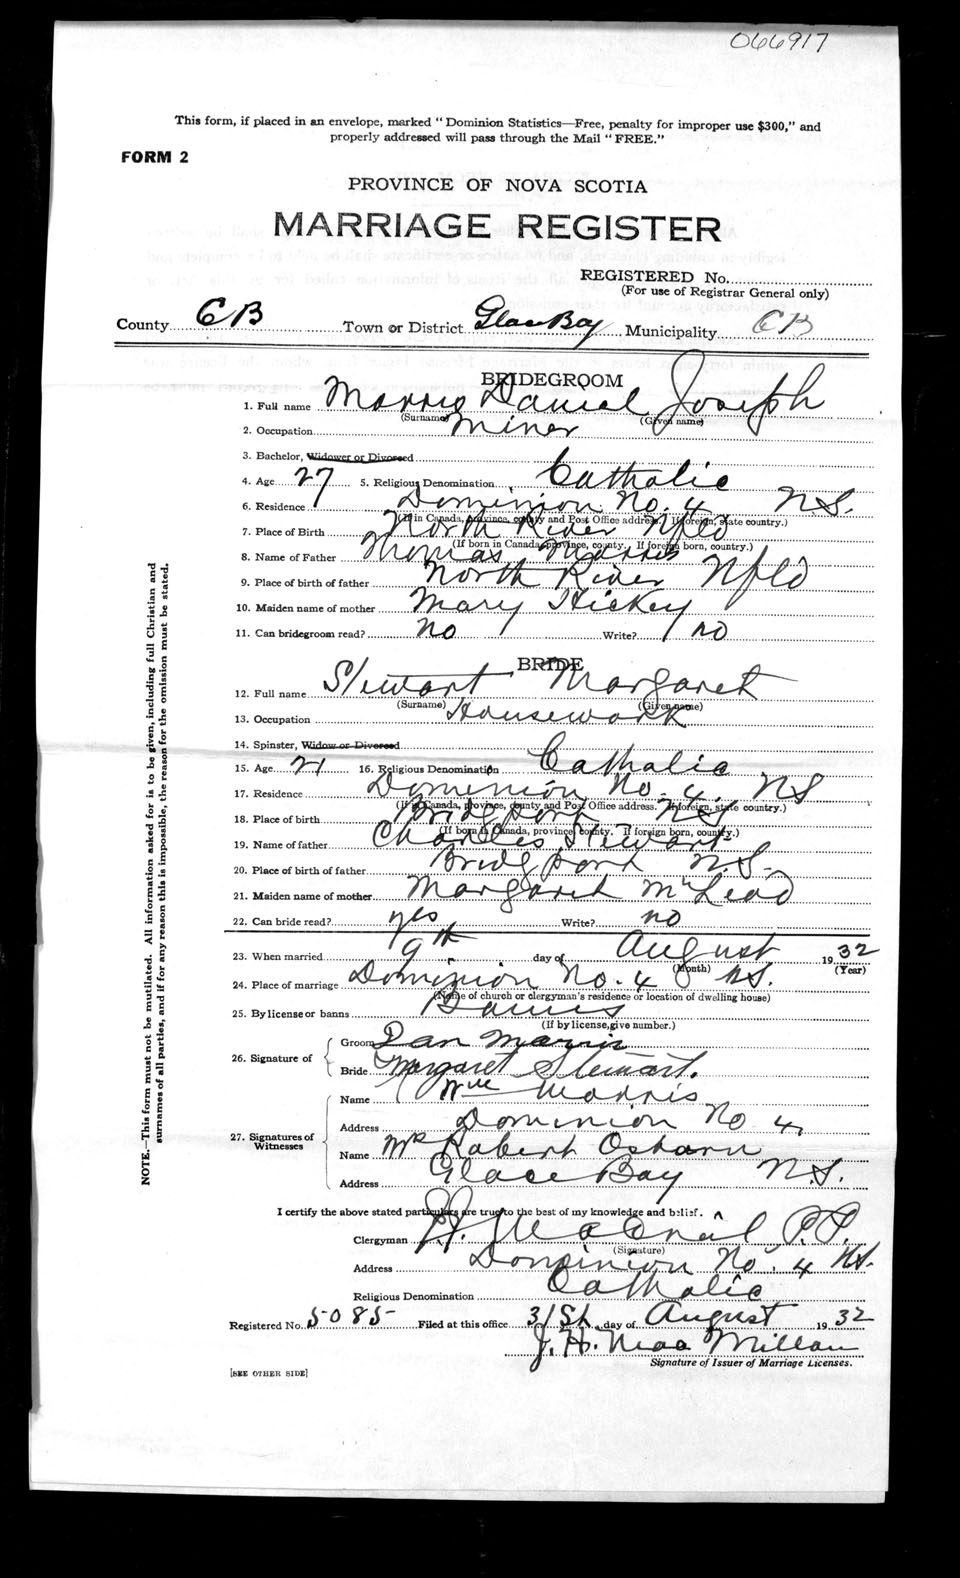 066917
This form, if placed in an envelope, marked "Dominion Statistics—Free, penalty for improper use $300," and
properly addressed will pass through the Mail "FREE."
FORM 2
PROVINCE OF NOVA SCOTIA
MARRIAGE REGISTER
REGISTERED No.
(For use of Registrar General only)
County CB Town or District Glace Bay Municipality CB
BRIDEGROOM
1. Full name Morris Daniel Joseph
(Surname) (Given name)
2. Occupation Miner
3. Bachelor, Widower or Divorced
4. Age 27 5. Religious Denomination Catholic
6. Residence Dominion No. 4 N.S.
(If in Canada, province, county and Post Office address. If foreign, state country.)
7. Place of Birth North River Nfld
(If born in Canada, province, county. If foreign born, country.)
8. Name of Father Thomas Morris
9. Place of birth of father North River Nfld
10. Maiden name of mother Mary Hickey
11. Can bridegroom read? no Write? no
BRIDE
12. Full name Stewart Margaret
(Surname) (Given name)
13. Occupation Housework
14. Spinster, Widow or Divorced
15. Age 21 16. Religious Denomination Catholic
17. Residence Dominion No. 4. NS
(If in Canada, province, county and Post Office address. If foreign, state country.)
18. Place of birth Bridgport NS
(If born in Canada, province, county. If foreign born, country.)
19. Name of father Charles Stewart
20. Place of birth of father Bridgport N.S.
21. Maiden name of mother Margaret McLeod
22. Can bride read? yes Write? no
23. When married 9th day of August 1932
(Month) (Year)
24. Place of marriage Dominion No. 4 NS.
(Name of church or clergyman's residence or location of dwelling house)
25. By license or banns Banns
(If by license, give number.)
26. Signature of
Groom Dan Morris
Bride Margaret Stewart.
27. Signatures of Witnesses
Name Wm Morris
Address Dominion No 4,
Name Mr Robert Osborn
Address Glace Bay N.S.
I certify the above stated particulars are true to the best of my knowledge and belief.
Clergyman P.P.
(Signature)
Address Dominion No. 4 NS.
Religious Denomination Catholic
Registered No. 5085 Filed at this office 31st day of August 1932
J. H. MacMillan
Signature of Issuer of Marriage Licenses.
[SEE OTHER SIDE]
NOTE.—This form must not be mutilated. All information asked for is to be given, including full Christian and
surnames of all parties, and if for any reason this is impossible, the reason for the omission must be stated.